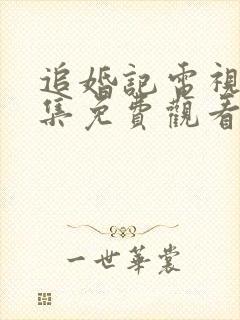 追婚記電視
集免費觀看
一世華裳